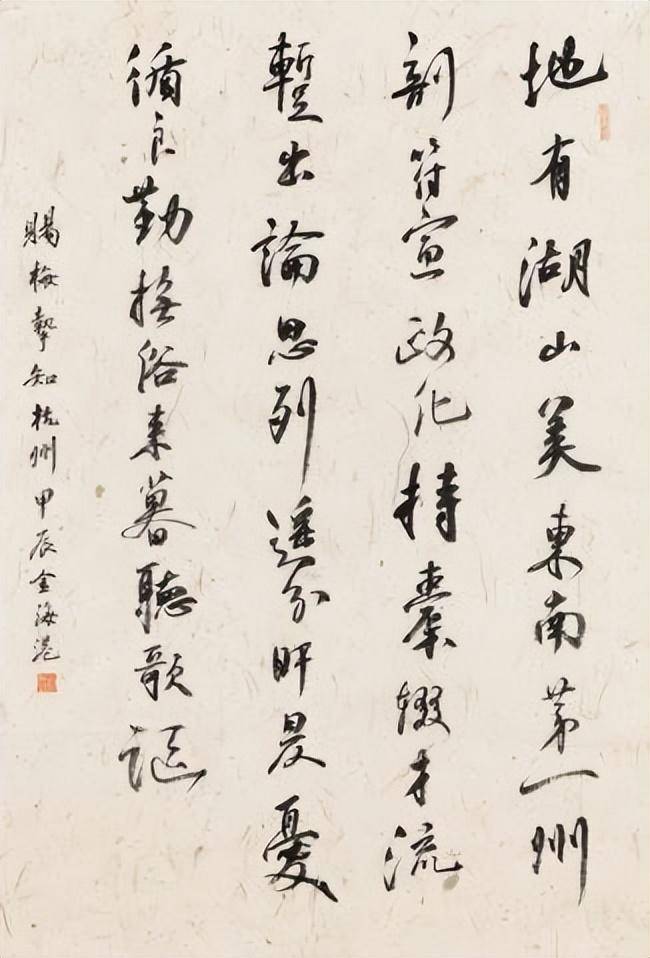 地有湖山美東南第一州
剖符宣政化持橐輟才流
暫出論思列遥分旰昃憂
循良勤撫俗来暮聽歌謳
賜梅摯知杭州甲辰金海港